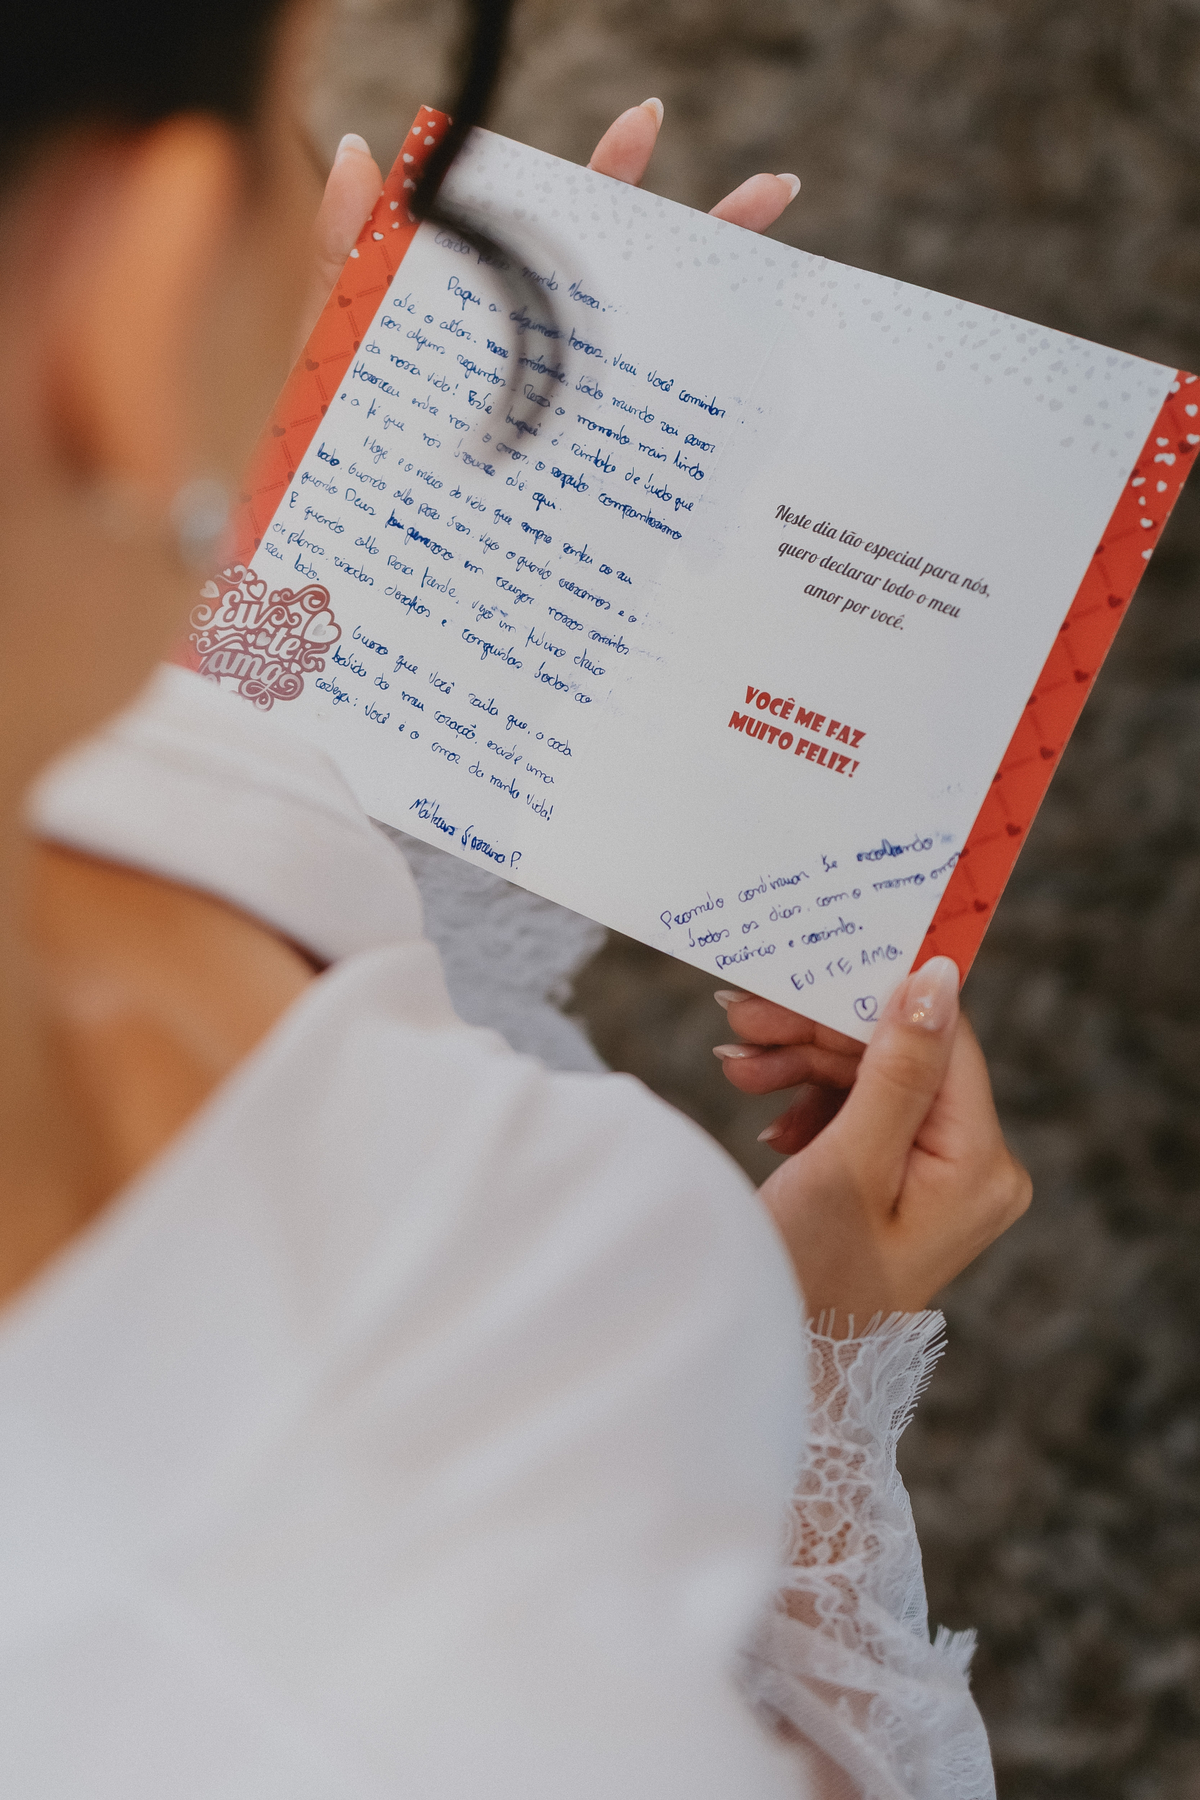 minha Nossa...
Daqui a algumas horas, verei você caminhar
até o altar. nesse instante, todo mundo vai parar
por alguns segundos. Será o momento mais lindo
da nossa vida! Este buquê é símbolo de tudo que
Floresceu entre nós: o amor, o respeito, companheirismo
e a fé que nos trouxe até aqui.
Hoje é o início da vida que sempre sonhei ao seu
lado. Quando olho para trás, vejo o quanto crescemos e o
quanto Deus foi generoso em cruzar nossos caminhos
E quando olho para frente, vejo um futuro cheio
de planos, risadas, desafios e conquistas todos ao
seu lado.
Quero que você saiba que, a cada
batida do meu coração, existe uma
certeza: você é o amor da minha vida!
Mateus P.
Eu
te
amo
Neste dia tão especial para nós,
quero declarar todo o meu
amor por você.
VOCÊ ME FAZ
MUITO FELIZ!
Prometo continuar te escolhendo
todos os dias, com o mesmo amor
paciência e carinho.
EU TE AMO.